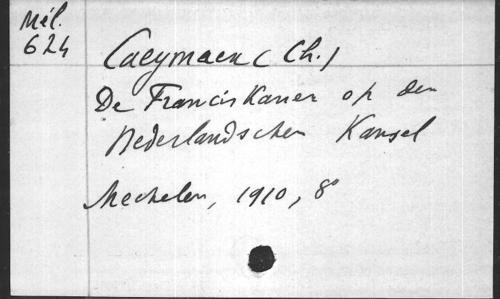 Mél.
624
Caeymaex (Ch.)
De Franciskaner op den
Nederlandschen Kansel
Mechelen, 1910, 8°